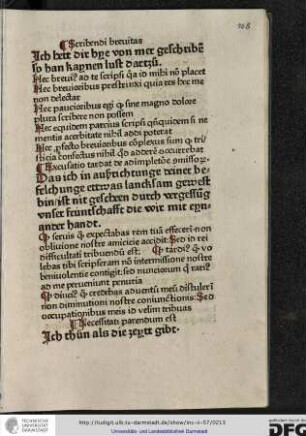 168
Scribendi breuitas
Ich hett dir bye von mer geschribē
so han kaynen lust dartzů.
Hec breuiꝰ ad te scripsi q̄a id mihi nō placet
Hec breuioribus prestrinxi quia res hec me
non delectat
Hec paucioribus egi qꝫ sine magno dolore
plura scribere non possem
Hec equidem parcius scripsi qm̄quidem si ne
mentis acerbitate nihil addi poterat
Hec ꝓfecto breuioribus cōplexus sum qꝫ tri/
sticia confectus nihil qd̄ adderē occurrebat
Excusatio tardat de adimpletōe ꝓmissorꝫ
Das ich in außrichtunge deiner be
felchunge ettwas lancksam gewest
bin/ist nit geschehen durch vergessūg
vnser fruntschafft die wir mit eyn-
ander handt.
seruiꝰ qꝫ expectabas rem tuā effecerī non
obliuione nostre amicicie accidit. Sed id rei
difficultati tribuendū est. tardiꝰ qꝫ vo
lebas tibi scripseram nō intermissione nostre
beniuolentie contigit: sed nunciorum qꝫ rariꝰ
ad me perueniunt penuria
diuciꝰ qꝫ credebas aduentū meū distulerī
non diminutioni nostre coniunctionis Sed
occupationibus meis id velim tribuas
Necessitati parendum est
Ich thůn als die zeytt gibt.
TECHNISCHE
UNIVERSITÄT
DARMSTADT
http://tudigit.ulb.tu-darmstadt.de/show/inc-ii-57/0213
Universitäts- und Landesbibliothek Darmstadt
DFG